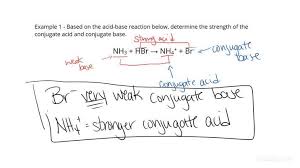 Example 1 - Based on the acid-base reaction below, determine the strength of the
conjugate acid and conjugate base.
strong acid
NH₃ + HBr → NH₄⁺ + Br⁻
weak
base
conjugate
base
conjugate acid
Br⁻ very weak conjugate base
NH₄⁺ = stronger conjugate acid